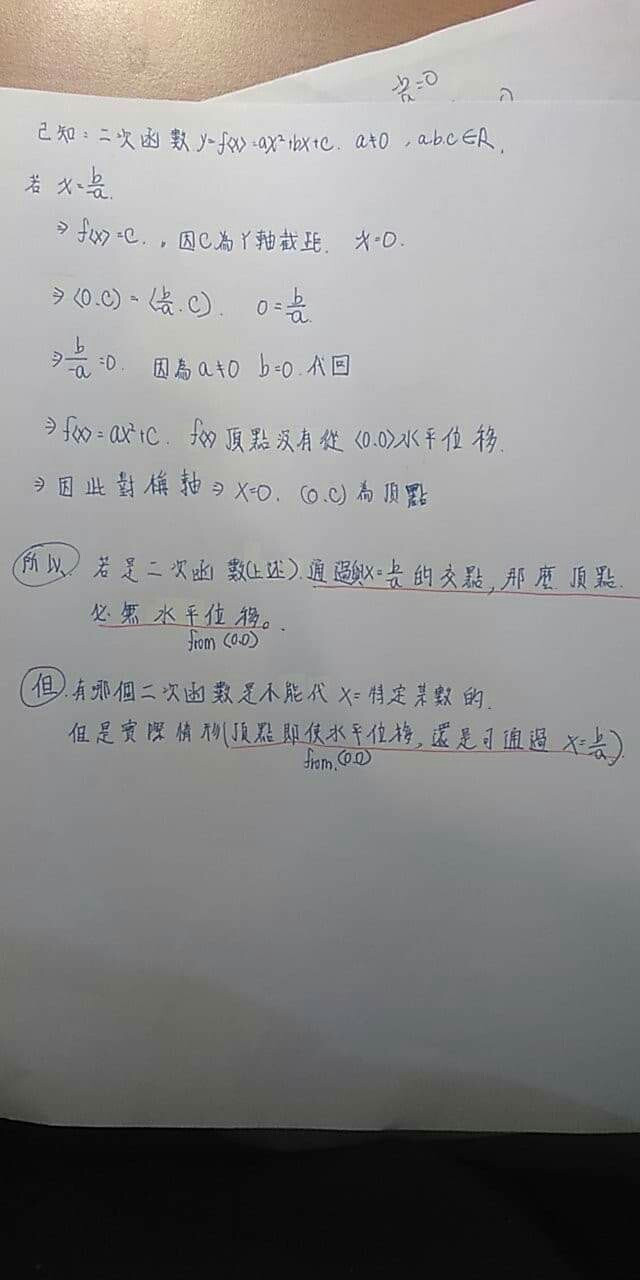 b/a=0
已知：二次函數 y=f(x)=ax²+bx+c. a≠0 , a.b.c∈R,
若 x=b/-a.
⇒ f(x)=c., 因c為Y軸截距. x=0.
⇒ (0.c) = (b/-a. c). 0=b/-a.
⇒ b/-a=0. 因為a≠0 b=0.代回
⇒ f(x)=ax²+c. f(x)頂點沒有從(0.0)水平位移.
⇒ 因此對稱軸⇒ x=0. (0.c)為頂點
所以 若是二次函數(上述).通過與x=b/-a的交點,那麼頂點.
必無水平位移。.
from (0.0)
但.有哪個二次函數是不能代 x=特定某數的.
但是實際情形(頂點即使水平位移,還是可通過 x=b/-a).
from.(0.0)